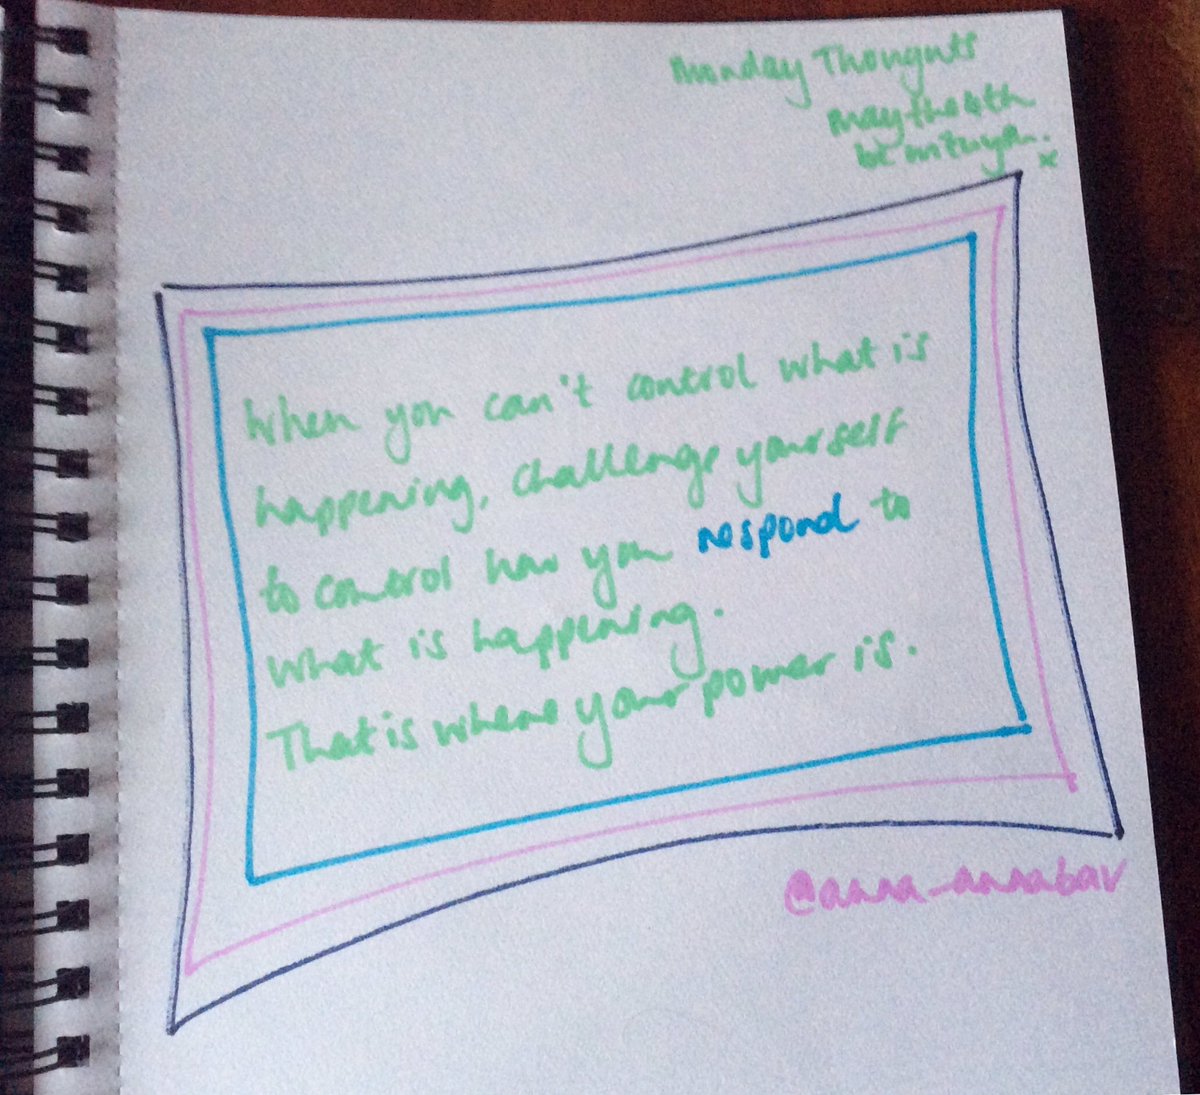 Monday Thoughts
May the 4th
be with you.
x
When you can't control what is
happening, challenge yourself
to control how you respond to
what is happening.
That is where your power is.
@anna_annabav